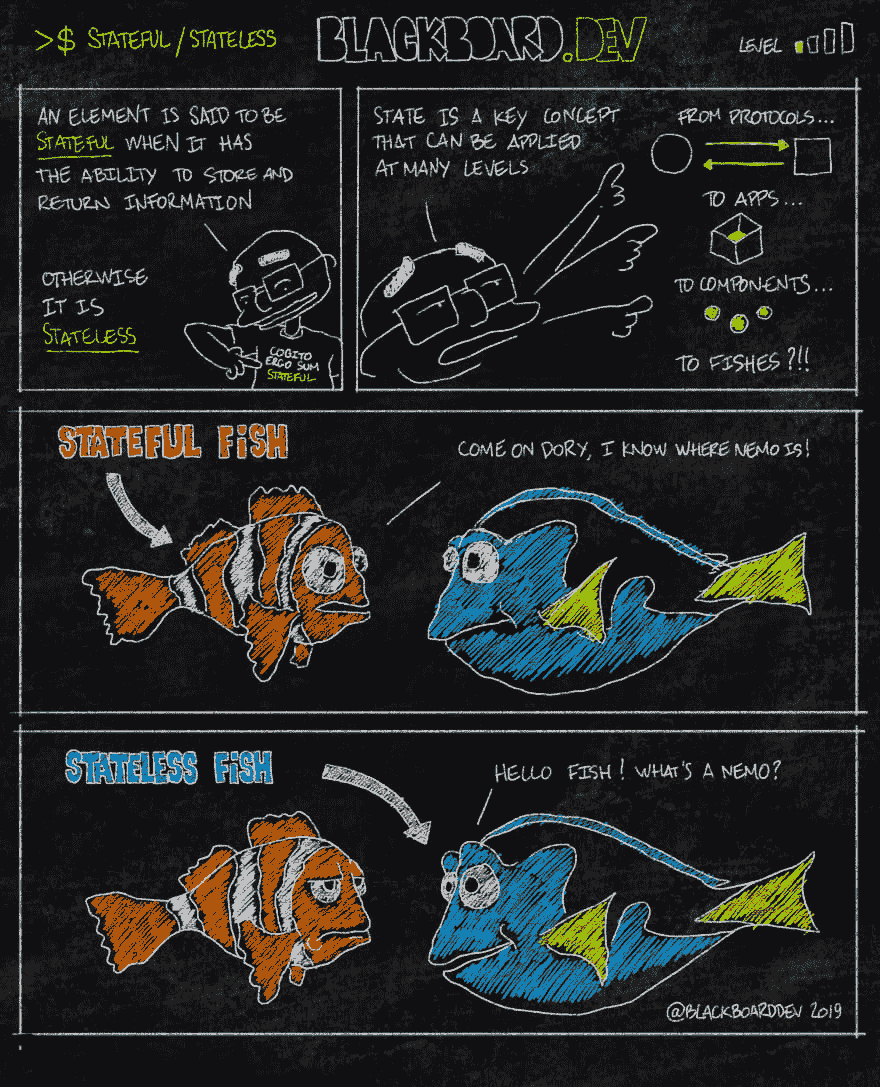 >$ STATEFUL/STATELESS
BLACKBOARD.DEV
LEVEL
AN ELEMENT IS SAID TO BE
STATEFUL WHEN IT HAS
THE ABILITY TO STORE AND
RETURN INFORMATION
OTHERWISE
IT IS
STATELESS
COGITO
ERGO SUM
STATEFUL
STATE IS A KEY CONCEPT
THAT CAN BE APPLIED
AT MANY LEVELS
FROM PROTOCOLS...
TO APPS...
TO COMPONENTS...
TO FISHES?!!
STATEFUL FISH
COME ON DORY, I KNOW WHERE NEMO IS!
STATELESS FISH
HELLO FISH! WHAT'S A NEMO?
@BLACKBOARDDEV 2019